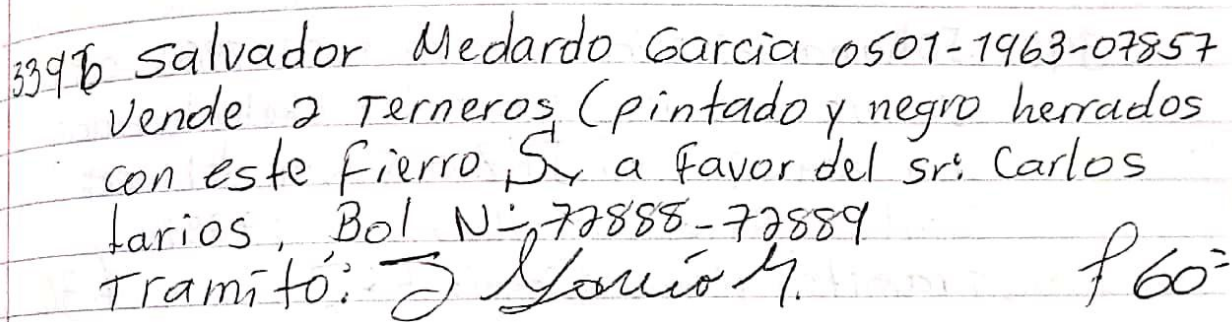 Salvador Medardo Garcia 0501-1963-07857
Vende 2 Terneros, (pintado y negro herrados
con este Fierro, a Favor del sr: Carlos
larios, Bol Nº 72888-72889
Tramitó:
60=